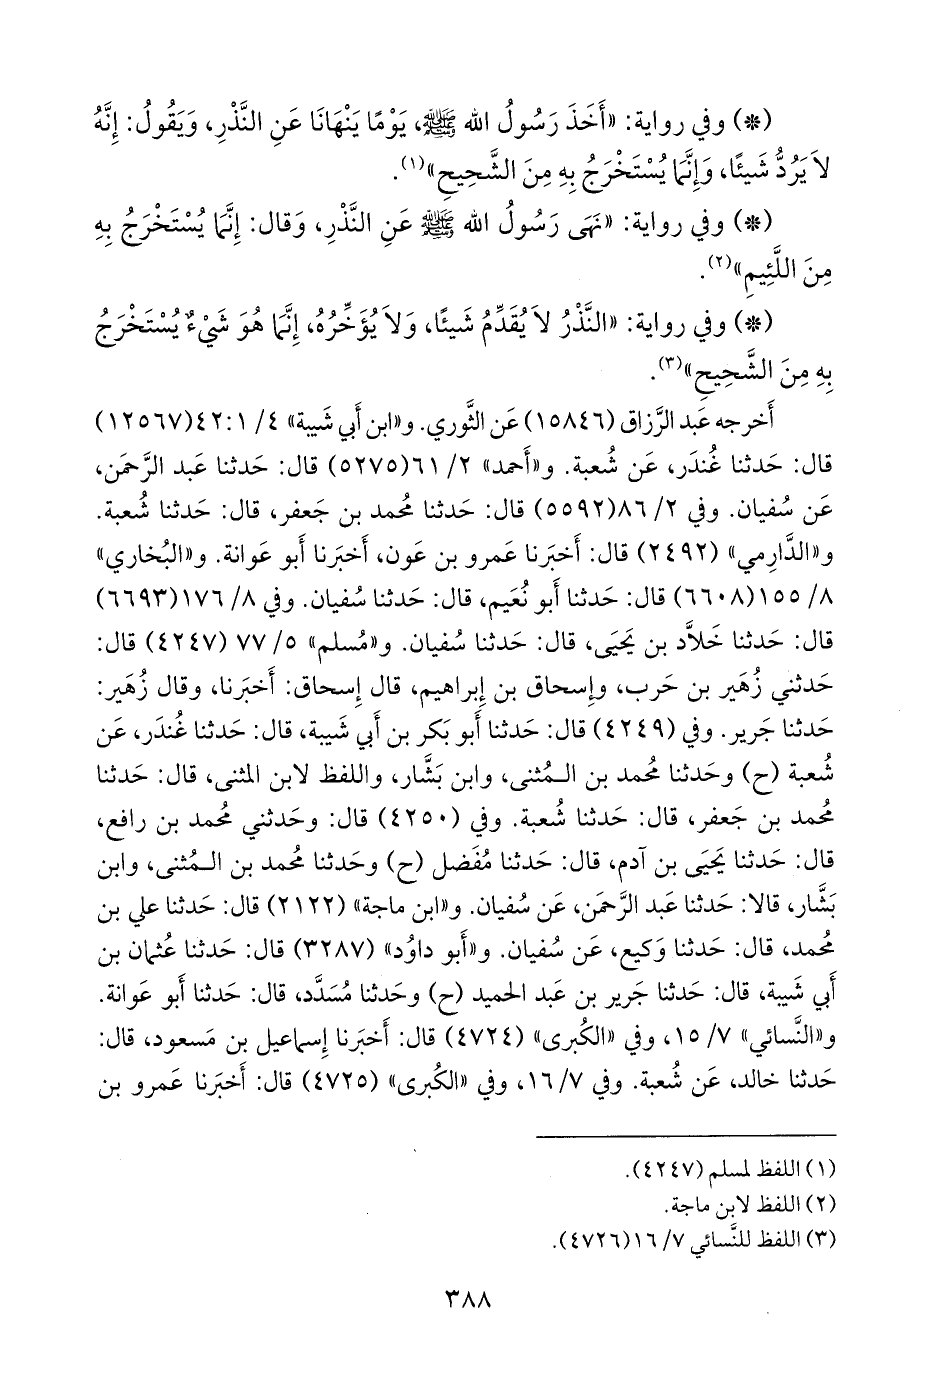 (*) وفي رواية: «أَخَذَ رَسُولُ الله ﷺ، يَوْمًا يَنْهَانَا عَنِ النَّذْرِ، وَيَقُولُ: إِنَّهُ
لاَ يَرُدُّ شَيئًا، وَإِنَّمَا يُسْتَخْرَجُ بِهِ مِنَ الشَّحِيحِ»(١).
(*) وفي رواية: «نَهَى رَسُولُ الله ﷺ عَنِ النَّذْرِ، وَقال: إِنَّمَا يُسْتَخْرَجُ بِهِ
مِنَ اللَّئِيمِ»(٢).
(*) وفي رواية: «النَّذْرُ لاَ يُقَدِّمُ شَيئًا، وَلاَ يُؤَخِّرُهُ، إِنَّمَا هُوَ شَيْءٌ يُسْتَخْرَجُ
بِهِ مِنَ الشَّحِيحِ»(٣).
أَخرجه عَبد الرَّزاق (١٥٨٤٦) عَن الثَّوري. و«ابن أَبي شَيبة» ٤/ ١:٤٢(١٢٥٦٧)
قال: حَدثنا غُندَر، عَن شُعبة. و«أَحمد» ٢/ ٦١(٥٢٧٥) قال: حَدثنا عَبد الرَّحمَن،
عَن سُفيان. وفي ٢/ ٨٦(٥٥٩٢) قال: حَدثنا مُحمد بن جَعفر، قال: حَدثنا شُعبة.
و«الدَّارِمي» (٢٤٩٢) قال: أَخبَرنا عَمرو بن عَون، أَخبَرنا أَبو عَوانة. و«البُخاري»
٨/ ١٥٥(٦٦٠٨) قال: حَدثنا أَبو نُعَيم، قال: حَدثنا سُفيان. وفي ٨/ ١٧٦(٦٦٩٣)
قال: حَدثنا خَلاَّد بن يَحيَى، قال: حَدثنا سُفيان. و«مُسلم» ٥/ ٧٧ (٤٢٤٧) قال:
حَدثني زُهَير بن حَرب، وإِسحاق بن إِبراهيم، قال إِسحاق: أَخبَرنا، وقال زُهَير:
حَدثنا جَرير. وفي (٤٢٤٩) قال: حَدثنا أَبو بَكر بن أَبي شَيبة، قال: حَدثنا غُندَر، عَن
شُعبة (ح) وحَدثنا مُحمد بن الـمُثنى، وابن بَشَّار، واللفظ لابن المثنى، قال: حَدثنا
مُحمد بن جَعفر، قال: حَدثنا شُعبة. وفي (٤٢٥٠) قال: وحَدثني مُحمد بن رافع،
قال: حَدثنا يَحيَى بن آدم، قال: حَدثنا مُفَضل (ح) وحَدثنا مُحمد بن الـمُثنى، وابن
بَشَّار، قالا: حَدثنا عَبد الرَّحمَن، عَن سُفيان. و«ابن ماجة» (٢١٢٢) قال: حَدثنا علي بن
مُحمد، قال: حَدثنا وَكيع، عَن سُفيان. و«أَبو داوُد» (٣٢٨٧) قال: حَدثنا عُثمان بن
أَبي شَيبة، قال: حَدثنا جَرير بن عَبد الحميد (ح) وحَدثنا مُسَدَّد، قال: حَدثنا أَبو عَوانة.
و«النَّسائي» ٧/ ١٥، وفي «الكُبرى» (٤٧٢٤) قال: أَخبَرنا إِسماعيل بن مَسعود، قال:
حَدثنا خالد، عَن شُعبة. وفي ٧/ ١٦، وفي «الكُبرى» (٤٧٢٥) قال: أَخبَرنا عَمرو بن
(١) اللفظ لمسلم (٤٢٤٧).
(٢) اللفظ لابن ماجة.
(٣) اللفظ للنَّسائي ٧/ ١٦(٤٧٢٦).
٣٨٨